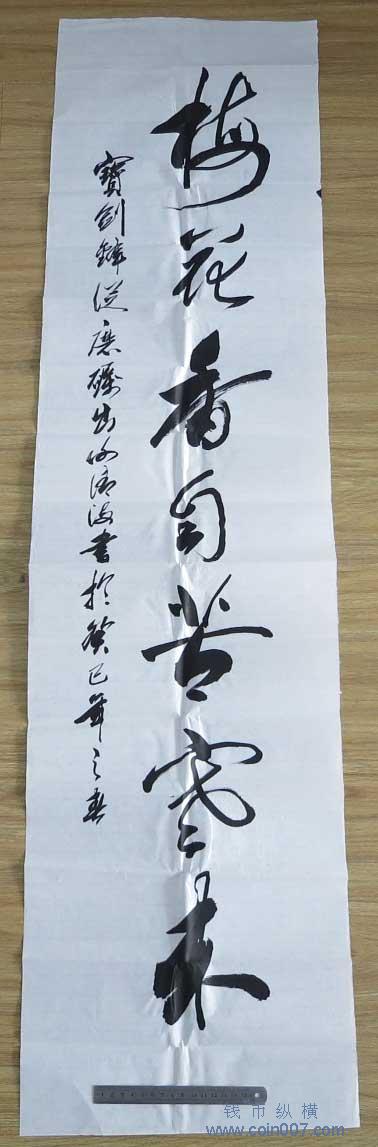 梅花香自苦寒来
寶劍鋒從磨礪出 海書於癸巳年之春
钱币纵横
www.coin007.com